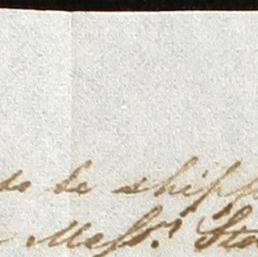 to be shipp
Messrs. Sto